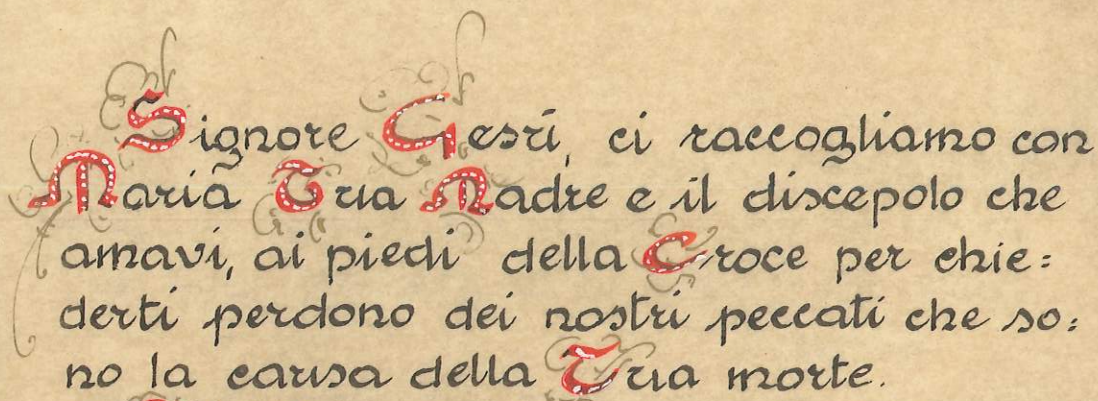 Signore Gesù, ci raccogliamo con
Maria Tua Madre e il discepolo che
amavi, ai piedi della Croce per chie=
derti perdono dei nostri peccati che so=
no la causa della Tua morte.